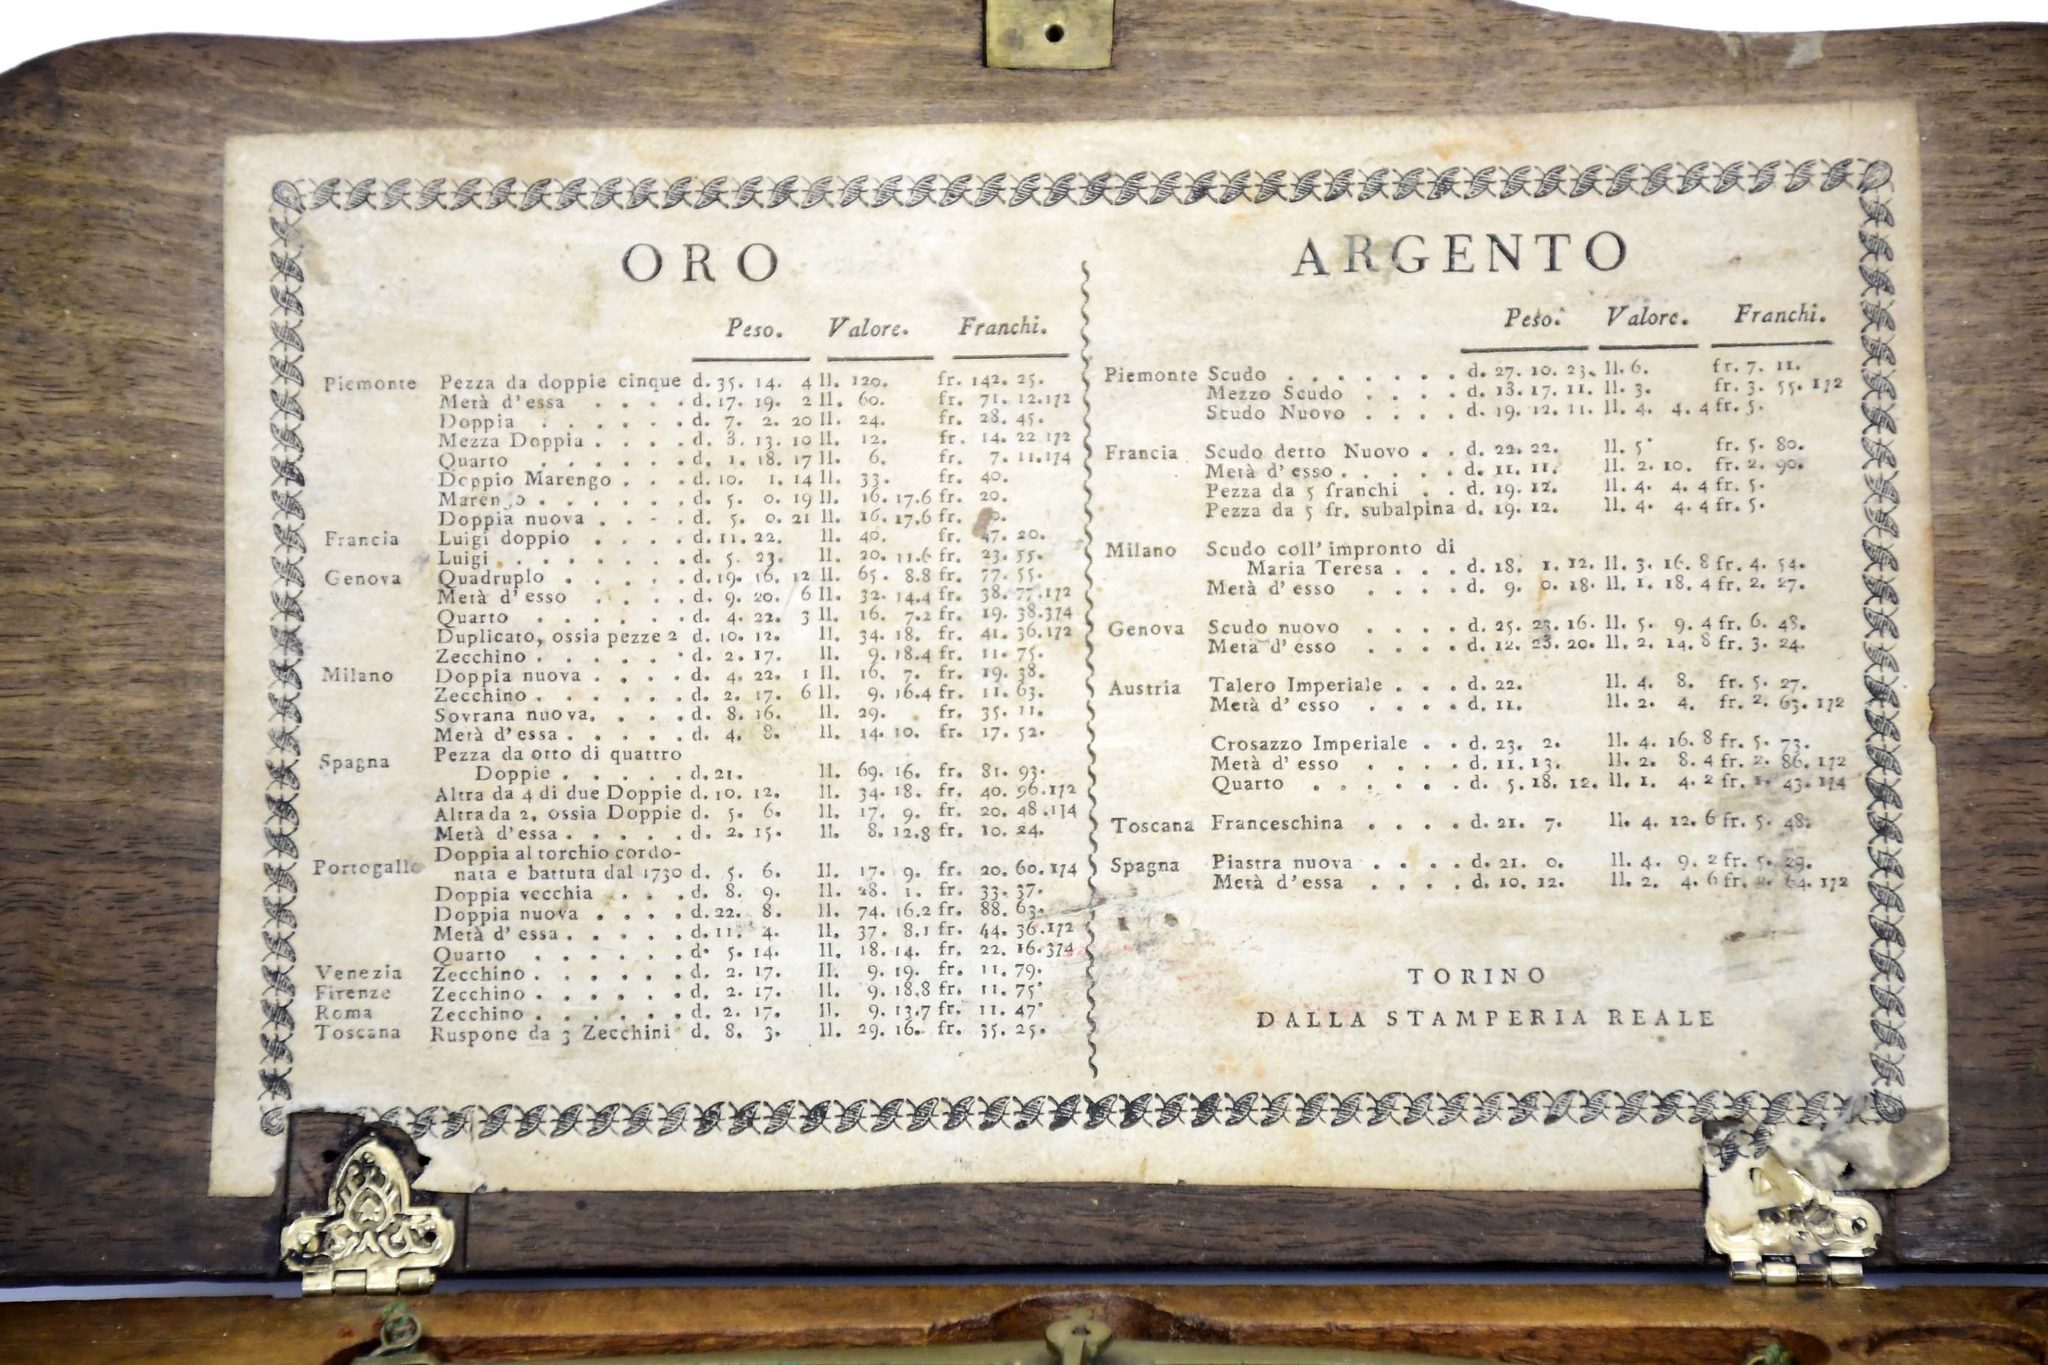 ORO
Peso. Valore. Franchi.
Piemonte Pezza da doppie cinque d. 35. 14. 4 ll. 120. fr. 142. 25.
Metà d'essa . . . . d. 17. 19. 2 ll. 60. fr. 71. 12. 172
Doppia . . . . . . d. 7. 2. 20 ll. 24. fr. 28. 45.
Mezza Doppia . . . . d. 3. 13. 10 ll. 12. fr. 14. 22 172
Quarto . . . . . . d. 1. 18. 17 ll. 6. fr. 7. 11. 174
Doppio Marengo . . . d. 10. 1. 14 ll. 33. fr. 40.
Marengo . . . . . . d. 5. 0. 19 ll. 16. 17.6 fr. 20.
Doppia nuova . . . . d. 5. 0. 21 ll. 16. 17.6 fr.
Francia Luigi doppio . . . . d. 11. 22. ll. 40. fr. 47. 20.
Luigi . . . . . . . d. 5. 23. ll. 20. 11.6 fr. 23. 55.
Genova Quadruplo . . . . . d. 19. 16. 12 ll. 65. 8.8 fr. 77. 55.
Metà d'esso . . . . d. 9. 20. 6 ll. 32. 14.4 fr. 38. 77. 172
Quarto . . . . . . d. 4. 22. 3 ll. 16. 7.2 fr. 19. 38. 374
Duplicato, ossia pezze 2 d. 10. 12. ll. 34. 18. fr. 41. 36. 172
Zecchino . . . . . . d. 2. 17. ll. 9. 18.4 fr. 11. 75.
Milano Doppia nuova . . . . d. 4. 22. 1 ll. 16. 7. fr. 19. 38.
Zecchino . . . . . . d. 2. 17. 6 ll. 9. 16.4 fr. 11. 63.
Sovrana nuova. . . . d. 8. 16. ll. 29. fr. 35. 11.
Metà d'essa . . . . . d. 4. 8. ll. 14. 10. fr. 17. 52.
Spagna Pezza da otto di quattro
Doppie . . . . . d. 21. ll. 69. 16. fr. 81. 93.
Altra da 4 di due Doppie d. 10. 12. ll. 34. 18. fr. 40. 96. 172
Altra da 2, ossia Doppie d. 5. 6. ll. 17. 9. fr. 20. 48. 174
Metà d'essa . . . . . d. 2. 15. ll. 8. 12.8 fr. 10. 24.
Portogallo Doppia al torchio cordo-
nata e battuta dal 1730 d. 5. 6. ll. 17. 9. fr. 20. 60. 174
Doppia vecchia . . . d. 8. 9. ll. 28. 1. fr. 33. 37.
Doppia nuova . . . . d. 22. 8. ll. 74. 16.2 fr. 88. 63.
Metà d'essa . . . . . d. 11. 4. ll. 37. 8.1 fr. 44. 36. 172
Quarto . . . . . . d. 5. 14. ll. 18. 14. fr. 22. 16. 374
Venezia Zecchino . . . . . . d. 2. 17. ll. 9. 19. fr. 11. 79.
Firenze Zecchino . . . . . . d. 2. 17. ll. 9. 18.8 fr. 11. 75.
Roma Zecchino . . . . . . d. 2. 17. ll. 9. 13.7 fr. 11. 47.
Toscana Ruspone da 3 Zecchini d. 8. 3. ll. 29. 16. fr. 35. 25.
ARGENTO
Peso. Valore. Franchi.
Piemonte Scudo . . . . . . . d. 27. 10. 23. ll. 6. fr. 7. 11.
Mezzo Scudo . . . . d. 13. 17. 11. ll. 3. fr. 3. 55. 172
Scudo Nuovo . . . . d. 19. 12. 11. ll. 4. 4. 4 fr. 5.
Francia Scudo detto Nuovo . . d. 22. 22. ll. 5. fr. 5. 80.
Metà d'esso . . . . d. 11. 11. ll. 2. 10. fr. 2. 90.
Pezza da 5 franchi . . d. 19. 12. ll. 4. 4. 4 fr. 5.
Pezza da 5 fr. subalpina d. 19. 12. ll. 4. 4. 4 fr. 5.
Milano Scudo coll'impronto di
Maria Teresa . . . d. 18. 1. 12. ll. 3. 16. 8 fr. 4. 54.
Metà d'esso . . . . d. 9. 0. 18. ll. 1. 18. 4 fr. 2. 27.
Genova Scudo nuovo . . . . d. 25. 23. 16. ll. 5. 9. 4 fr. 6. 48.
Metà d'esso . . . . d. 12. 23. 20. ll. 2. 14. 8 fr. 3. 24.
Austria Talero Imperiale . . . d. 22. ll. 4. 8. fr. 5. 27.
Metà d'esso . . . . d. 11. ll. 2. 4. fr. 2. 63. 172
Crosazzo Imperiale . . d. 23. 2. ll. 4. 16. 8 fr. 5. 73.
Metà d'esso . . . . d. 11. 13. ll. 2. 8. 4 fr. 2. 86. 172
Quarto . . . . . . d. 5. 18. 12. ll. 1. 4. 2 fr. 1. 43. 174
Toscana Franceschina . . . . d. 21. 7. ll. 4. 12. 6 fr. 5. 48.
Spagna Piastra nuova . . . . d. 21. 0. ll. 4. 9. 2 fr. 5. 29.
Metà d'essa . . . . d. 10. 12. ll. 2. 4. 6 fr. 2. 64. 172
TORINO
DALLA STAMPERIA REALE